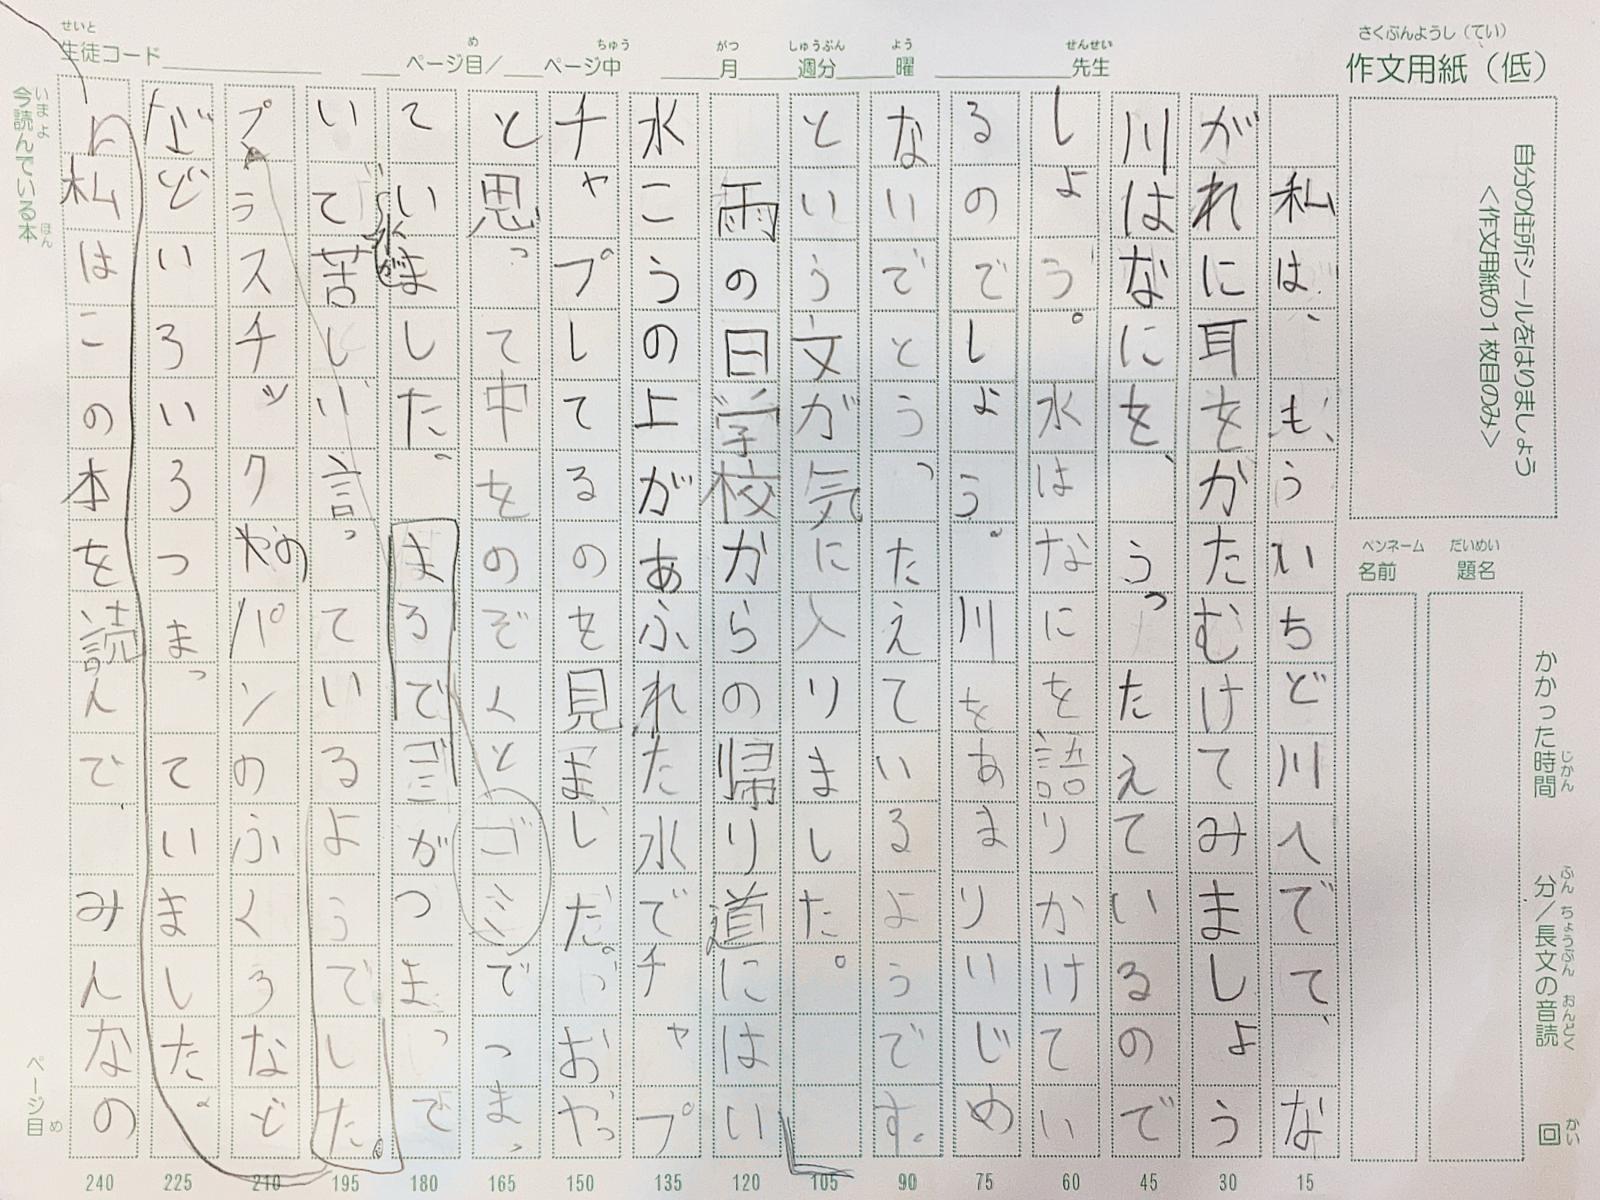 さくぶんようし（てい）
作文用紙（低）
自分の住所シールをはりましょう
＜作文用紙の１枚目のみ＞
だいめい
題名
ペンネーム
名前
かかった時間 分／長文の音読 回
じかん ふん ちょうぶん おんどく かい
せいと
生徒コード
め ちゅう
ページ目／ ページ中
がつ しゅうぶん よう
月 週分 曜
せんせい
先生
私は、もういちど川へでて、な
がれに耳をかたむけてみましょう
川はなにを、うったえているので
しょう。水はなにを語りかけてい
るのでしょう。川をあまりいじめ
ないでとうったえているようです。
という文が気に入りました。
雨の日学校からの帰り道にはい
水こうの上があふれた水でチャプ
チャプしてるのを見ました。おやっ
と思って中をのぞくとゴミでつま
っていました。まるでゴミがつまっで
水が
いて苦しい言っているようでした。
プラスチックのパンのふくろなど
や
などいろいろつまっていました。
私はこの本を読んで、みんなの
15
30
45
60
75
90
105
120
135
150
165
180
195
210
225
240
いまよ ほん
今読んでいる本
ページ目
め